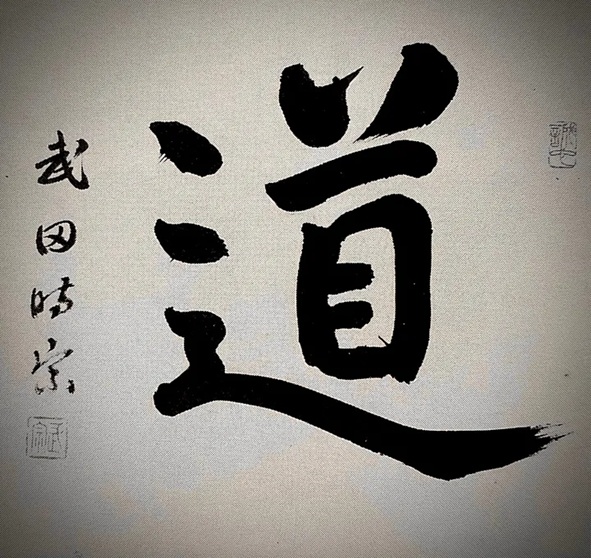 道
武田時宗